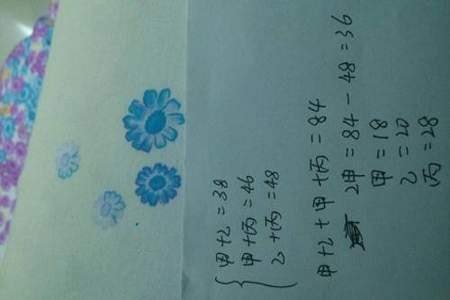 甲+乙=38
甲+丙=46
乙+丙=48
甲+乙+甲+丙=84
2甲=84-48=36
甲=18
乙=20
丙=28